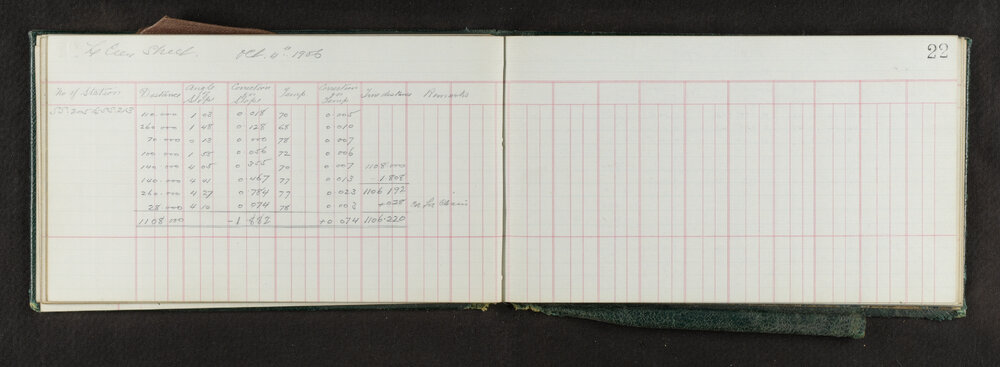 Oct. 4th 1956
22
No of Station Distance Angle of Slope Correction for Slope Temp Correction for Temp True distance Remarks
110.000 1 03 0 018 70 0 005
260.000 1 48 0 128 68 0 010
70.000 0 13 0 000 78 0 007
100.000 1 55 0 056 72 0 006
140.000 4 05 0 355 70 0 007 1108.000
140.000 4 41 0 467 77 0 013 1.808
260.000 4 27 0 784 77 0 023 1106 192
28.000 4 10 0 074 78 0 003 +028
1108 000 -1 882 +0 074 1106.220